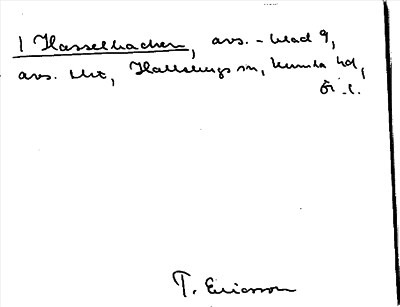 1 Hasselbacken, avs. - blad 9,
avs. utr, Hallsbergs sn, Kumla hd,
Ör. l.
T. Ericsson